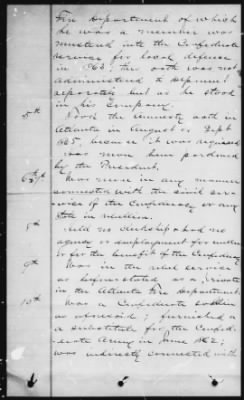 Fire Department of which
he was a member was
mustered into the Confederate
service for local defense
in 1863; the oath was not
administered to deponent
separately but as he stood
in his Company.
5th Took the amnesty oath in
Atlanta in August or Sept
1865, because it was required
. Was never pardoned
by the President.
6th, 7th Was never in any manner
connected with the civil serv-
vice of the Confederacy or any
State in rebellion.
8th Held no clerkship & had no
agency or employment for under
or for the benefit of the Confederacy
9th Was in the rebel service
as before stated as a private
in the Atlanta Fire Department
10th Was a Confederate soldier
as aforesaid; furnished a
a substitute for the Confed-
erate Army in June 1862;
was indirectly connected with